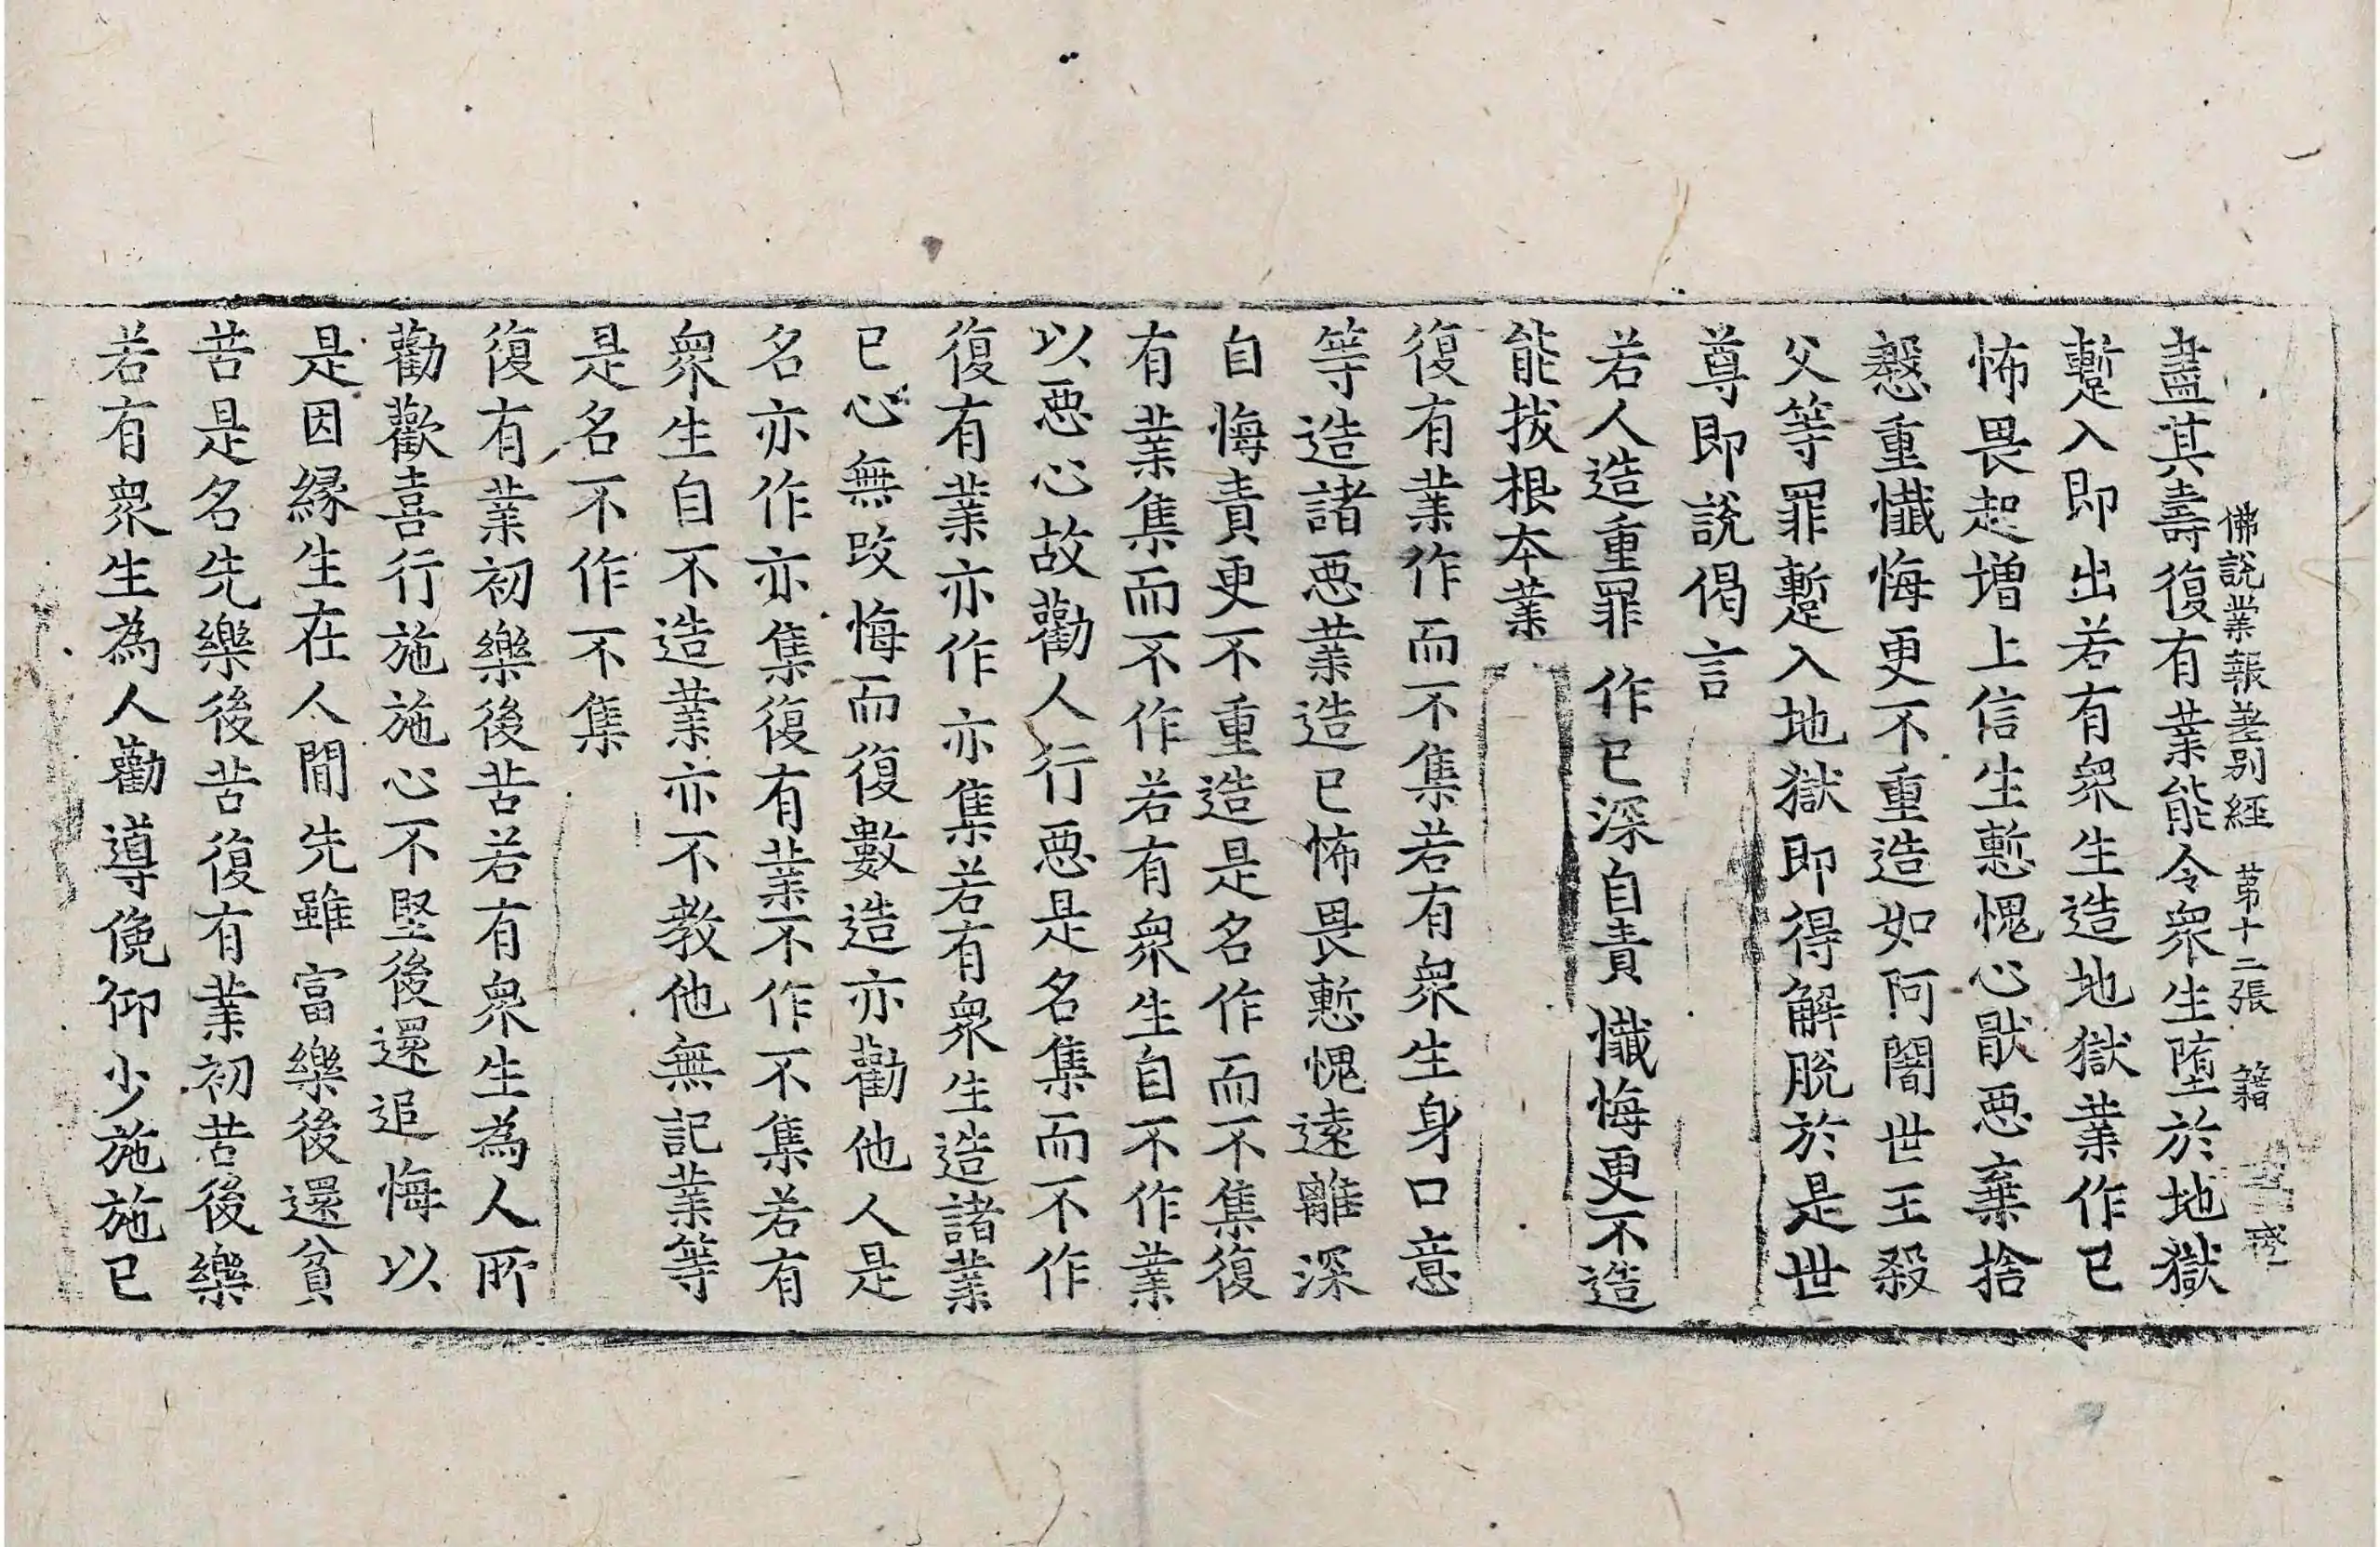 佛說業報差別經 苐十二張 籍
盡其壽復有業能令衆生墮於地獄
蹔入即出若有衆生造地獄業作已
怖畏起增上信生慙愧心猒惡棄捨
慇重懺悔更不重造如阿闍世王殺
父等罪蹔入地獄即得解脫於是世
尊即說偈言
若人造重罪 作已深自責 懺悔更不造
能拔根本業
復有業作而不集若有衆生身口意
等造諸惡業造已怖畏慙愧遠離深
自悔責更不重造是名作而不集復
有業集而不作若有衆生自不作業
以惡心故勸人行惡是名集而不作
復有業亦作亦集若有衆生造諸業
已心無改悔而復數造亦勸他人是
名亦作亦集復有業不作不集若有
衆生自不造業亦不教他無記業等
是名不作不集
復有業初樂後苦若有衆生為人所
勸歡喜行施施心不堅後還追悔以
是因緣生在人間先雖富樂後還貧
苦是名先樂後苦復有業初苦後樂
若有衆生為人勸導俛仰少施施已